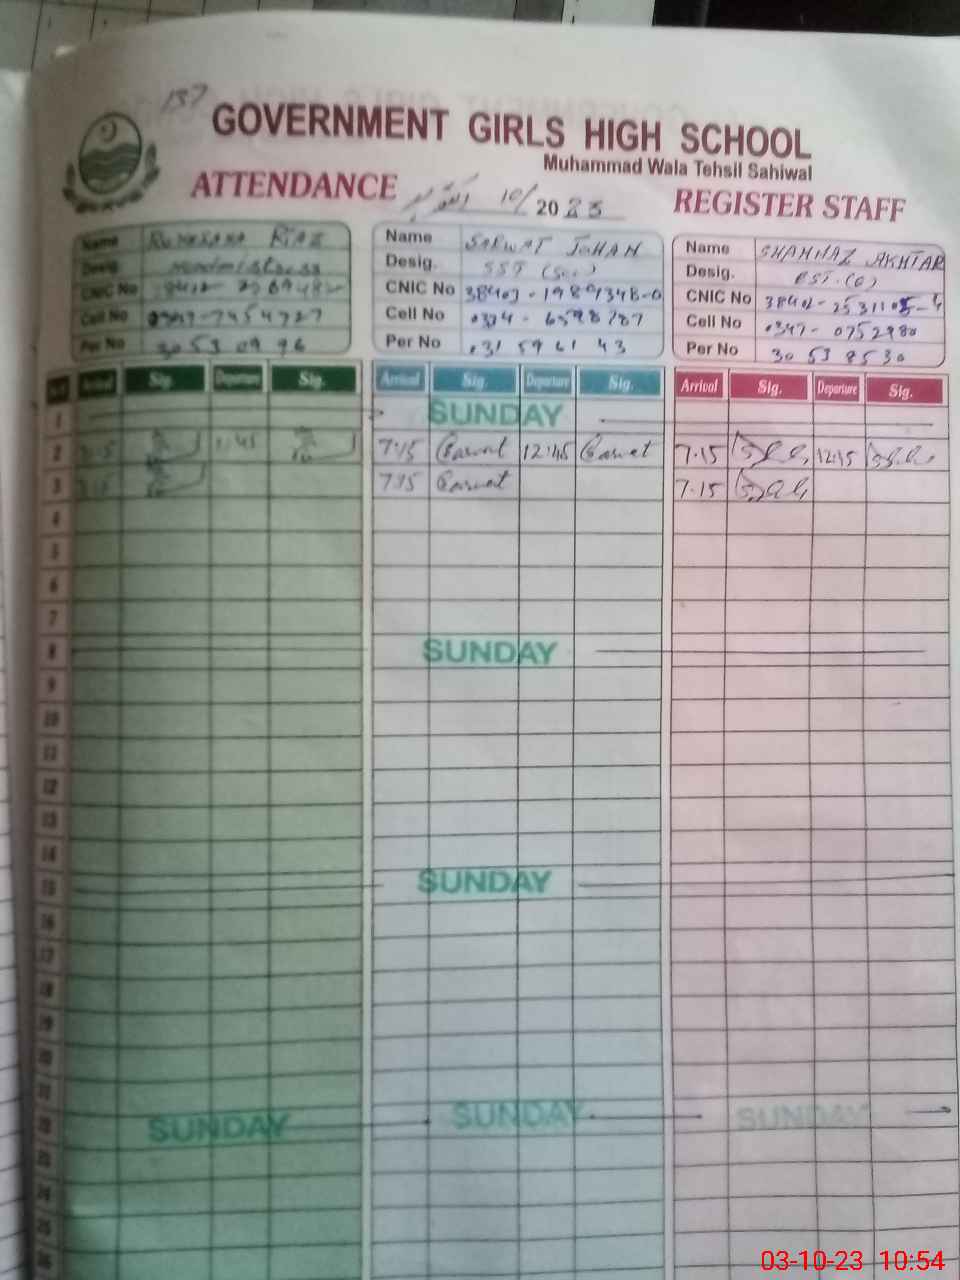 137
GOVERNMENT GIRLS HIGH SCHOOL
Muhammad Wala Tehsil Sahiwal
ATTENDANCE اکتوبر 10/ 2023 REGISTER STAFF
Name RUKHSANA RIAZ Name SARWAT JEHAN Name SHAHNAZ AKHTAR
Desig. Headmistress Desig. SST (Sci) Desig. EST.(O)
CNIC No CNIC No CNIC No
Cell No Cell No Cell No 0347-0752980
Per No 30530996 Per No 31596143 Per No 30538530
Arrival Sig. Departure Sig. Arrival Sig. Departure Sig. Arrival Sig. Departure Sig.
1 SUNDAY
2 1:45 7:15 Sarwat 12:45 Sarwat 7.15 12:45
3 7:15 Sarwat 7.15
4
5
6
7
8 SUNDAY
9
10
11
12
13
14
15 SUNDAY
16
17
18
19
20
21
22 SUNDAY SUNDAY SUNDAY
23
24
25
26
03-10-23 10:54